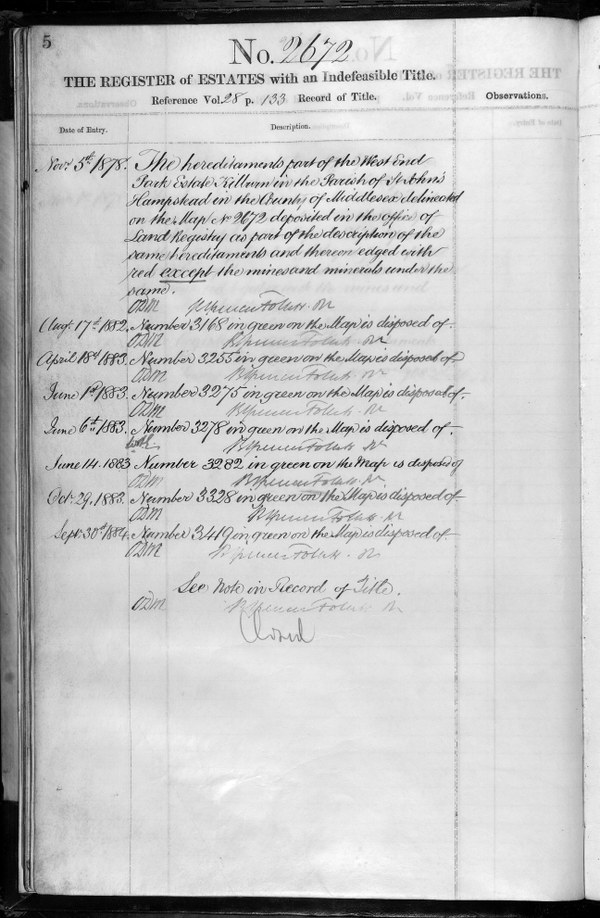 5
No. 2672
THE REGISTER of ESTATES with an Indefeasible Title.
Reference Vol. 28 p. 133 Record of Title.
Observations.
Date of Entry.
Description.
Novr. 5th 1878. The hereditaments part of the West End
Park Estate Kilburn in the Parish of St Johns
Hampstead in the County of Middlesex delineated
on the Map No 2672 deposited in the office of
Land Registry as part of the description of the
same hereditaments and thereon edged with
red except the mines and minerals under the
same.
ODM
Augt. 17th 1882. Number 3168 in green on the Map is disposed of.
ODM
April 18th 1883. Number 3255 in green on the Map is disposed of.
ODM
June 1st 1883. Number 3275 in green on the Map is disposed of.
ODM
June 6th 1883. Number 3278 in green on the Map is disposed of.
June 14. 1883 Number 3282 in green on the Map is disposed of
ODM
Oct. 29. 1883. Number 3328 in green on the Map is disposed of
ODM
Sept. 30th 1884. Number 3419 in green on the Map is disposed of
ODM
See Note in Record of Title.
ODM
Closed